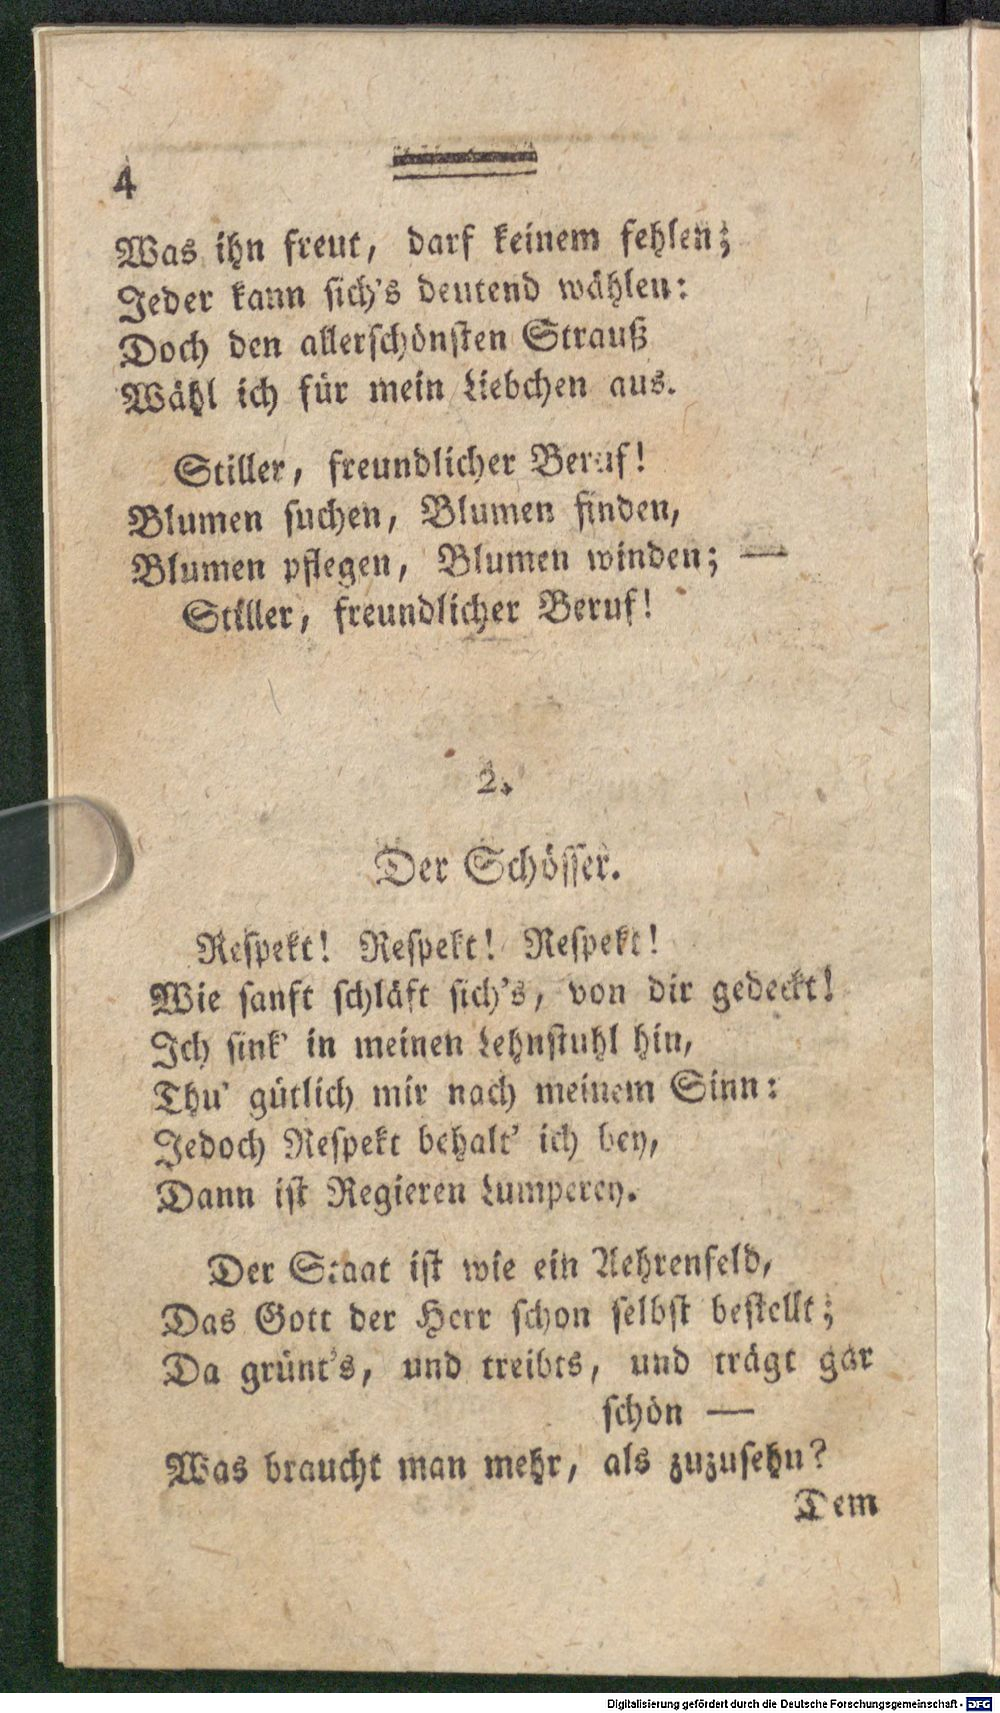 4
Was ihn freut, darf keinem fehlen;
Jeder kann sich's deutend wählen:
Doch den allerschönsten Strauß
Wähl ich für mein Liebchen aus.
Stiller, freundlicher Beruf!
Blumen suchen, Blumen finden,
Blumen pflegen, Blumen winden; —
Stiller, freundlicher Beruf!
2.
Der Schösser.
Respekt! Respekt! Respekt!
Wie sanft schläft sich's, von dir gedeckt!
Ich sink' in meinen Lehnstuhl hin,
Thu' gütlich mir nach meinem Sinn:
Jedoch Respekt behalt' ich bey,
Dann ist Regieren Lumperey.
Der Staat ist wie ein Aehrenfeld,
Das Gott der Herr schon selbst bestellt;
Da grünt's, und treibts, und trägt gar
schön —
Was braucht man mehr, als zuzusehn?
Dem
Digitalisierung gefördert durch die Deutsche Forschungsgemeinschaft - DFG